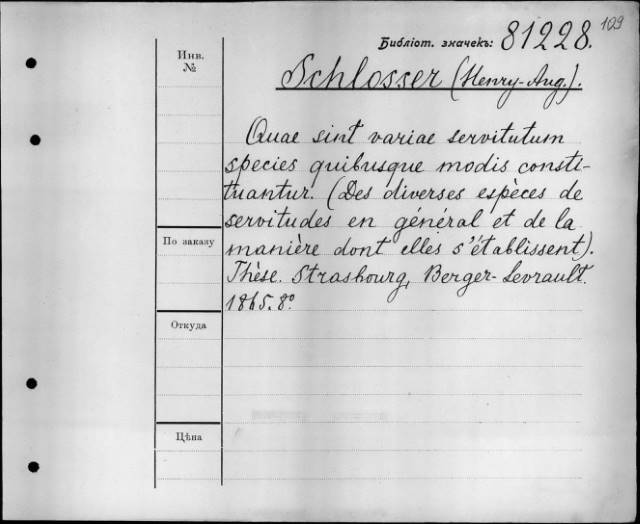 109
Библіот. значекъ: 81228.
Инв.
№
Schlosser (Henry-Aug.).
Quae sint variae servitutum
species quibusque modis consti-
tuantur. (Des diverses espèces de
servitudes en général et de la
По заказу
manière dont elles s'établissent).
Thèse. Strasbourg, Berger-Levrault.
1865. 8º
Откуда
Цѣна